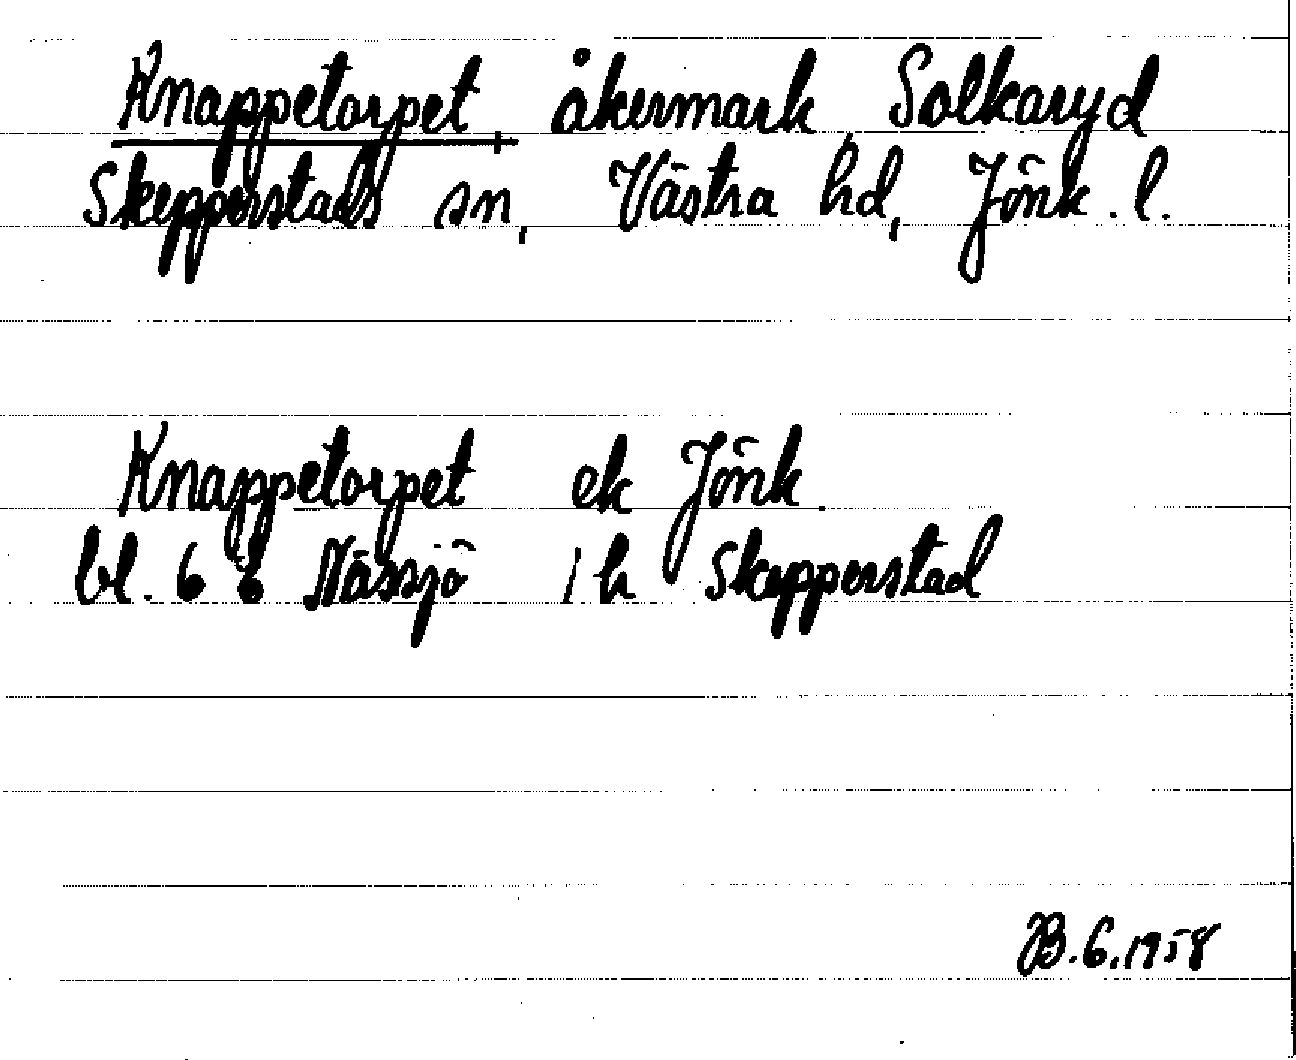 Knappetorpet, åkermark, Solkaryd
Skepperstads sn, Västra hd, Jönk. l.
Knappetorpet ek Jönk.
bl. 6 6 Nässjö 1 h Skepperstad
B.G.1958